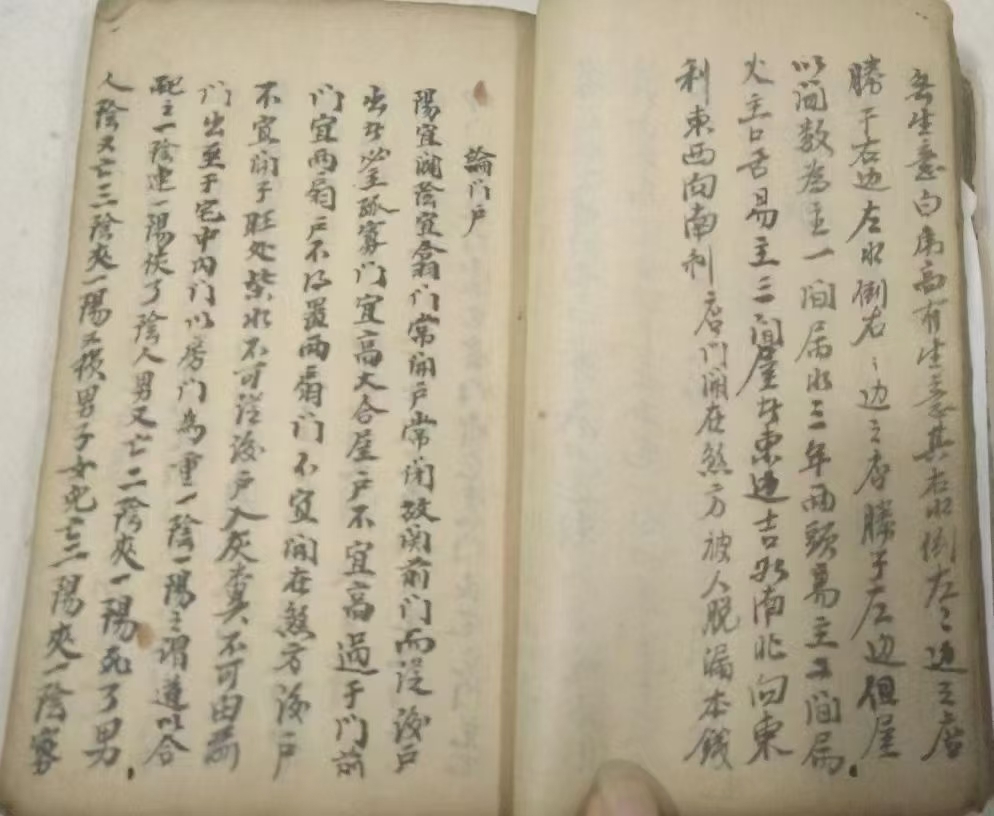 無生意白虎高有生意其右水倒左〻边之店
勝于右边左水倒右〻边之店勝于左边但屋
以间数為主一间属水三年两頭易主二间属
火主口舌易主三间屋於東边吉 南北向東
利東西向南利店门闲在煞方被人脱漏本錢
論门户
陽宜闢陰宜翕门常闲户常闭故闲前门而没後户
出於必至孤寡门宜高大合屋户不宜高過于门前
门宜两扇户不得置两扇门不宜闲在煞方後户
不宜闲于旺处柴水不可從後户入灰糞不可由前
门出至于宅中内门以房门為重一陰一陽之谓道以合
配之一陰連一陽挨了陰人男又亡二陰夾一陽死了男
人陰又亡三陰夾一陽又損男子女死亡三陽夾一陰寡